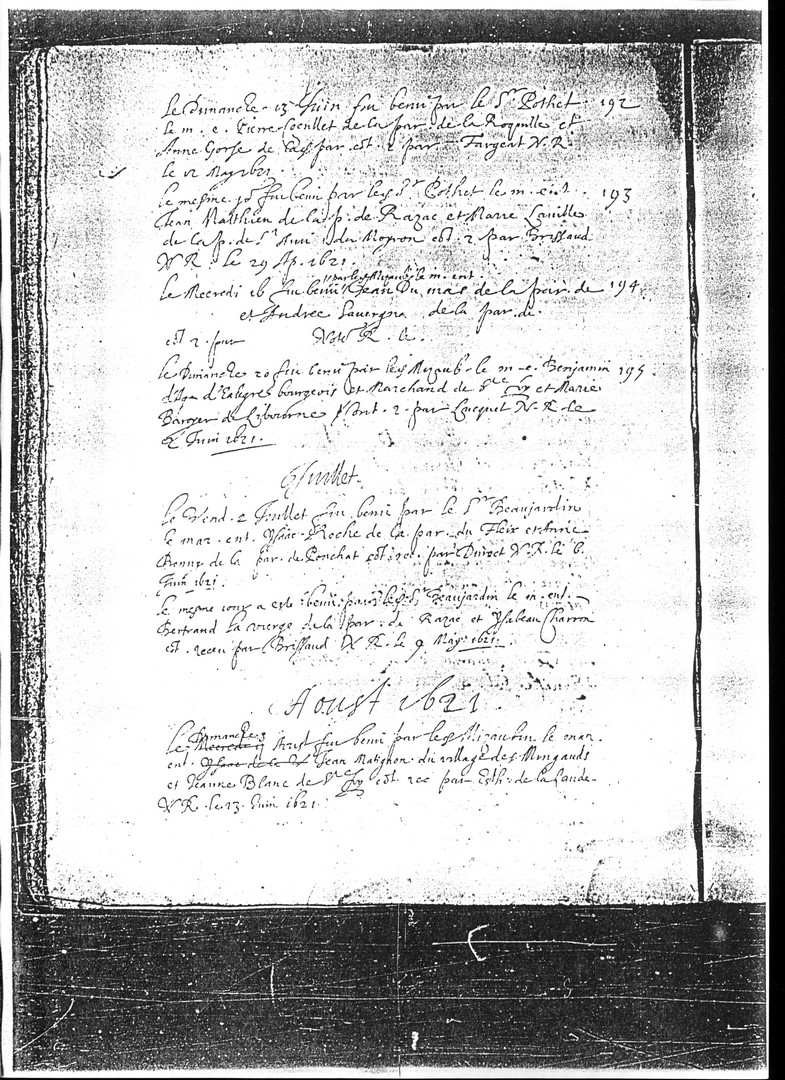 Le Dimanche 13 Juin fut beni par le Sr Pothet 192
le m. e. Pierre Coeillet de la par de la Roquille et
Anne Gorse de par est 2 par Targeat N. R.
le 12 May 1621
le mesme jo fut beni par le Sr Pothet le m. ent. 193
Jean Matthieu de la p. de Razac et Marie Lauille
de la p. de St du est 2 par Brissaud
N R le 29 Ap. 1621.
par le Sr Mizaub le m. ent.
Le Mecredi 16 fut beni Jean Du mas de la par de 194
et Andree Lauergna de la par. de
est 2. par Note R. le
le Dimanche 20 fut beni par le Sr Mizaub. le m. e. Benjamin 195.
bourgeois et Marchand de Ste foy et Marie
Barger de Libourne sont. 2. par N. R. le
2 Juin 1621.
Juillet
le Vend. 2 Juillet fut beni par le Sr Beaujardin
le mar. ent. Ysaac Roche de la par. du Fleix et Anne
de la par. de Ponchat est rec. par N. R. le 6
Juin 1621.
le mesme iour a este beni par le Sr Beaujardin le m. ent.
Bertrand la vierge de la par. de Razac et Ysabeau Charron
est. receu par Brissaud N R. le 9 May. 1621.
Aoust 1621.
Le Dimanche Aoust fut beni par le Sr Mizaubin le mar.
ent. Jean Matignon du village des Mingauds
et Jeanne Blanc de Ste foy est rec par Esth. de la Lande
N R. le 13 Juin 1621.